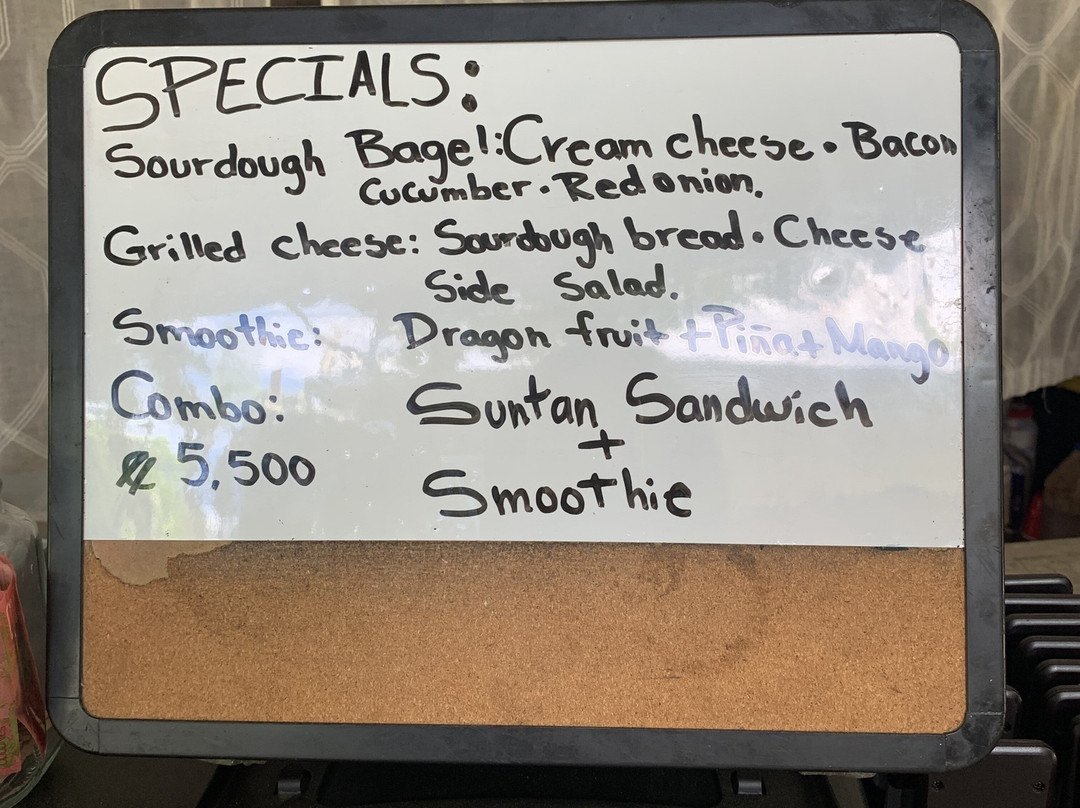 SPECIALS:
Sourdough Bagel: Cream cheese • Bacon
Cucumber • Red onion.
Grilled cheese: Sourdough bread • Cheese
Side Salad.
Smoothie: Dragon fruit + Piña + Mango
Combo: Suntan Sandwich
+
₡ 5,500
Smoothie